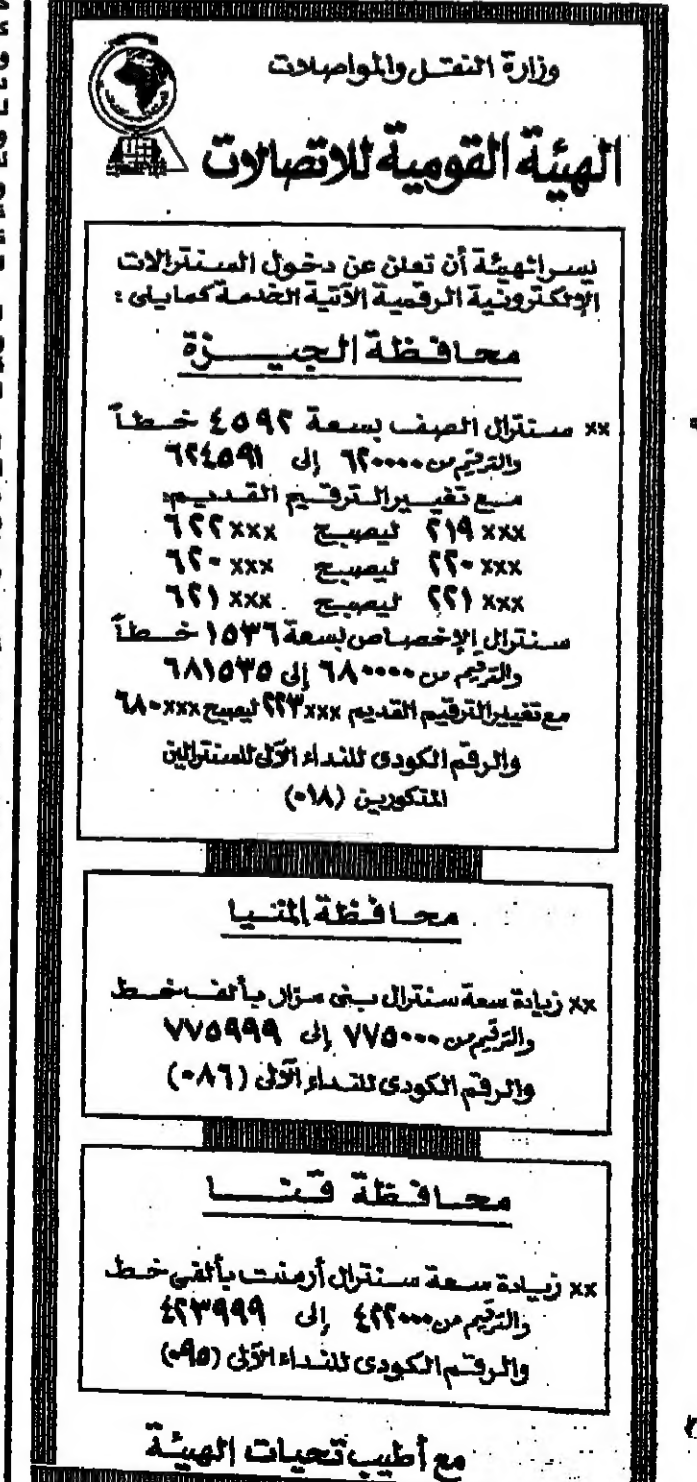 وزارة النقل والمواصلات
الهيئة القومية للاتصالات
يسر الهيئة أن تعلن عن دخول السنترالات
الإلكترونية الرقمية الآتية الخدمة كمايلى :
محافظة الجيزة
×× سنترال الصف بسعة ٤٥٩٢ خطاً
والترقيم من ٦٢٠٠٠٠ إلى ٦٢٤٥٩١
مع تغيير الترقيم القديم:
٢١٩ xxx ليصبح ٦٢٢ xxx
٢٢٠ xxx ليصبح ٦٢٠ xxx
٢٢١ xxx ليصبح ٦٢١ xxx
سنترال الإخصاص بسعة ١٥٣٦ خطاً
والترقيم من ٦٨٠٠٠٠ إلى ٦٨١٥٣٥
مع تغيير الترقيم القديم ٢٢٣xxx ليصبح ٦٨٠xxx
والرقم الكودى للنداء الآلى للسنترالين
المذكورين (٠١٨)
محافظة المنيا
×× زيادة سعة سنترال بنى مزار بألف خط
والترقيم من ٧٧٥٠٠٠ إلى ٧٧٥٩٩٩
والرقم الكودى للنداء الآلى (٠٨٦)
محافظة قنا
×× زيادة سعة سنترال أرمنت بألفى خط
والترقيم من ٤٢٢٠٠٠ إلى ٤٢٣٩٩٩
والرقم الكودى للنداء الآلى (٠٩٥)
مع أطيب تحيات الهيئة